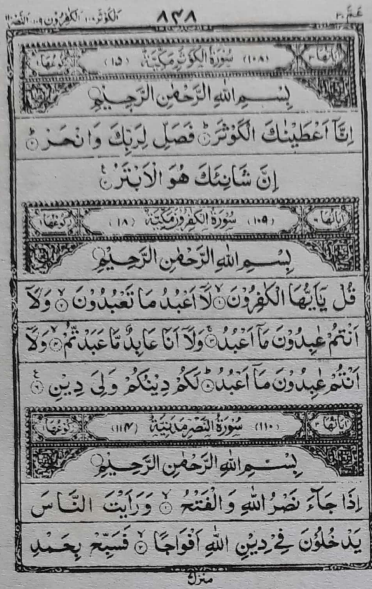 عَمَّ ٣٠ ٨٤٨ الكوثر ١٠٨ الكفرون ١٠٩ النصر ١١٠
اٰيَاتُهَا ٣ (١٠٨) سُوْرَةُ الْكَوْثَرِ مَكِّيَّةٌ (١٥) رُكُوْعُهَا
بِسْمِ اللهِ الرَّحْمٰنِ الرَّحِيْمِ
اِنَّاۤ اَعْطَيْنٰكَ الْكَوْثَرَ ۞ فَصَلِّ لِرَبِّكَ وَانْحَرْ ۞
اِنَّ شَانِئَكَ هُوَ الْاَبْتَرُ ۞
(١٠٩) سُوْرَةُ الْكٰفِرُوْنَ مَكِّيَّةٌ (١٨) رُكُوْعُهَا
بِسْمِ اللهِ الرَّحْمٰنِ الرَّحِيْمِ
قُلْ يٰۤاَيُّهَا الْكٰفِرُوْنَ ۞ لَاۤ اَعْبُدُ مَا تَعْبُدُوْنَ ۞ وَلَاۤ
اَنْتُمْ عٰبِدُوْنَ مَاۤ اَعْبُدُ ۞ وَلَاۤ اَنَا عَابِدٌ مَّا عَبَدْتُّمْ ۞ وَلَاۤ
اَنْتُمْ عٰبِدُوْنَ مَاۤ اَعْبُدُ ۞ لَكُمْ دِيْنُكُمْ وَلِيَ دِيْنِ ۞
اٰيَاتُهَا ٣ (١١٠) سُوْرَةُ النَّصْرِ مَدَنِيَّةٌ (١١٤) رُكُوْعُهَا
بِسْمِ اللهِ الرَّحْمٰنِ الرَّحِيْمِ
اِذَا جَآءَ نَصْرُ اللهِ وَالْفَتْحُ ۞ وَرَاَيْتَ النَّاسَ
يَدْخُلُوْنَ فِيْ دِيْنِ اللهِ اَفْوَاجًا ۞ فَسَبِّحْ بِحَمْدِ
منزل